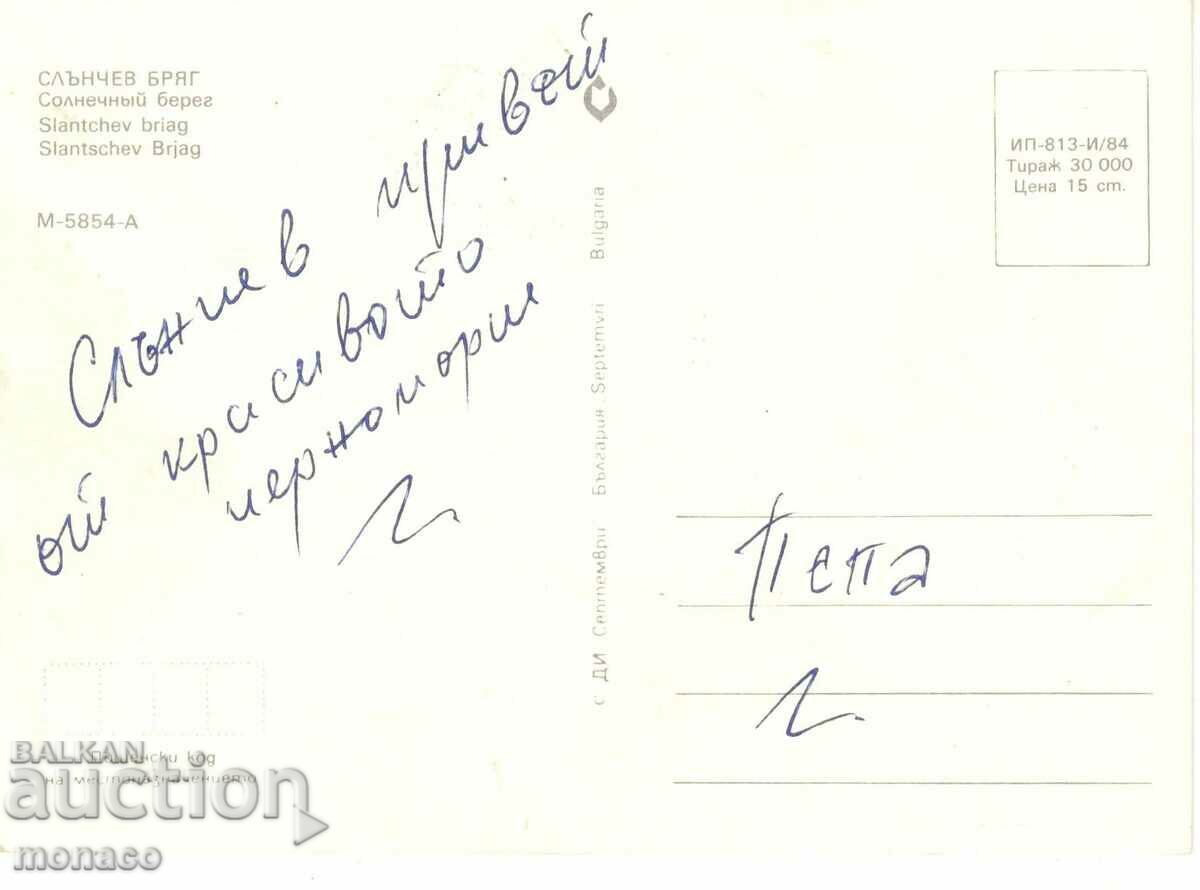 СЛЪНЧЕВ БРЯГ
Солнечный берег
Slantchev briag
Slantschev Brjag
М-5854-А
Слънчев привет
от красивото
черноморие
ИП-813-И/84
Тираж 30 000
Цена 15 ст.
с ДИ Септември България. Septemvri Bulgaria
Пепа
Пощенски код
на местоназначението
BALKAN
auction
monaco